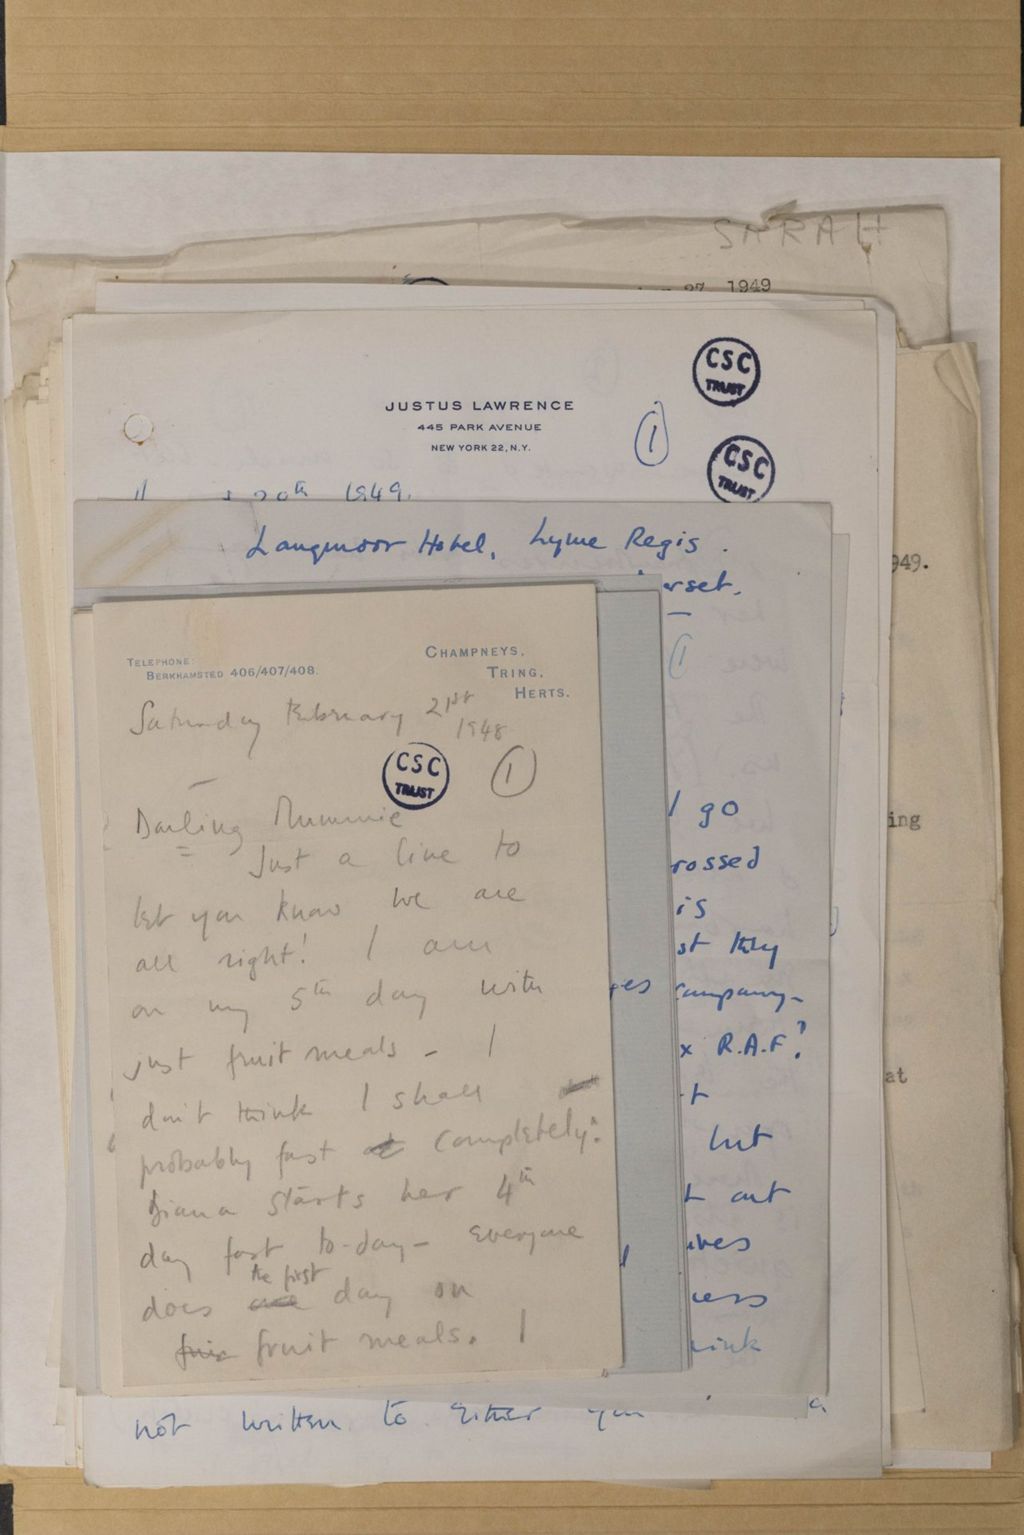 SARAH
27, 1949
CSC
TRUST
JUSTUS LAWRENCE
445 PARK AVENUE
NEW YORK 22, N.Y.
1
CSC
TRUST
20th 1949.
Langmoor Hotel, Lyme Regis.
949.
TELEPHONE:
BERKHAMSTED 406/407/408.
CHAMPNEYS,
TRING,
HERTS.
1
Saturday February 21st
1948
CSC
TRUST
1
Darling Mummie
Just a line to
let you know we are
all right! I am
on my 5th day with
just fruit meals - I
don't think I shall
probably fast completely.
Diana starts her 4th
day fast to-day - Everyone
does the first day on
fruit meals. I
I go
is
st they
x R.A.F?
but
t out
ing
at
not written to either you